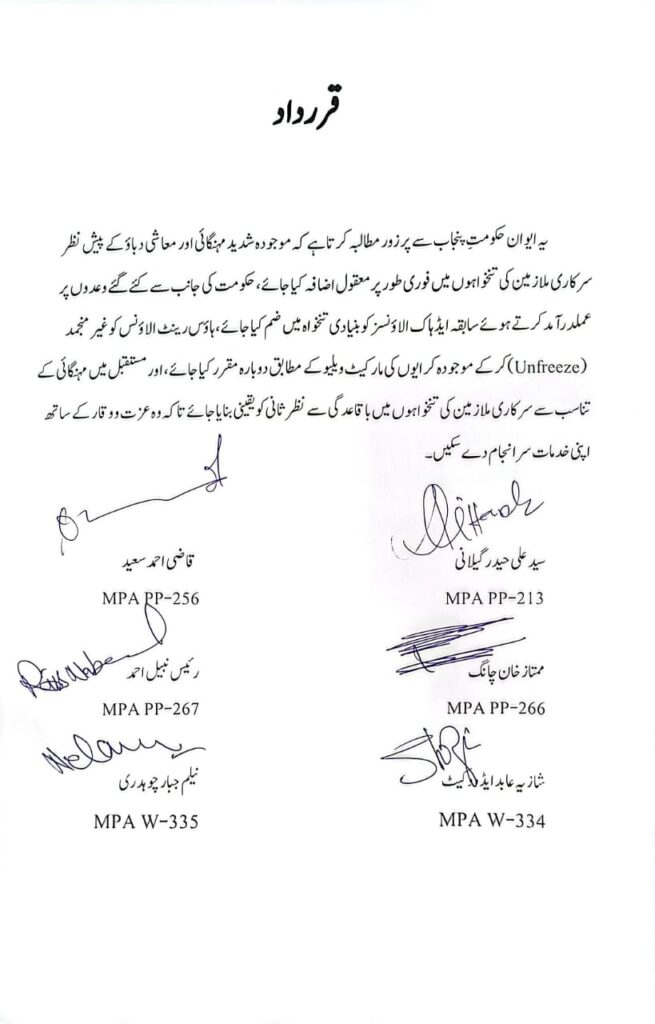 قرر داد
یہ ایوان حکومتِ پنجاب سے پر زور مطالبہ کرتا ہے کہ موجودہ شدید مہنگائی اور معاشی دباؤ کے پیش نظر
سرکاری ملازمین کی تنخواہوں میں فوری طور پر معقول اضافہ کیا جائے، حکومت کی جانب سے کئے گئے وعدوں پر
عملدرآمد کرتے ہوئے سابقہ ایڈہاک الاؤنسز کو بنیادی تنخواہ میں ضم کیا جائے، ہاؤس رینٹ الاؤنس کو غیر منجمد
(Unfreeze) کر کے موجودہ کرایوں کی مارکیٹ ویلیو کے مطابق دوبارہ مقرر کیا جائے، اور مستقبل میں مہنگائی کے
تناسب سے سرکاری ملازمین کی تنخواہوں میں باقاعدگی سے نظر ثانی کو یقینی بنایا جائے تاکہ وہ عزت و وقار کے ساتھ
اپنی خدمات سرانجام دے سکیں۔
سید علی حیدر گیلانی
MPA PP-213
قاضی احمد سعید
MPA PP-256
ممتاز خان چانگ
MPA PP-266
رئیس نبیل احمد
MPA PP-267
شازیہ عابد ایڈووکیٹ
MPA W-334
نیلم جبار چوہدری
MPA W-335